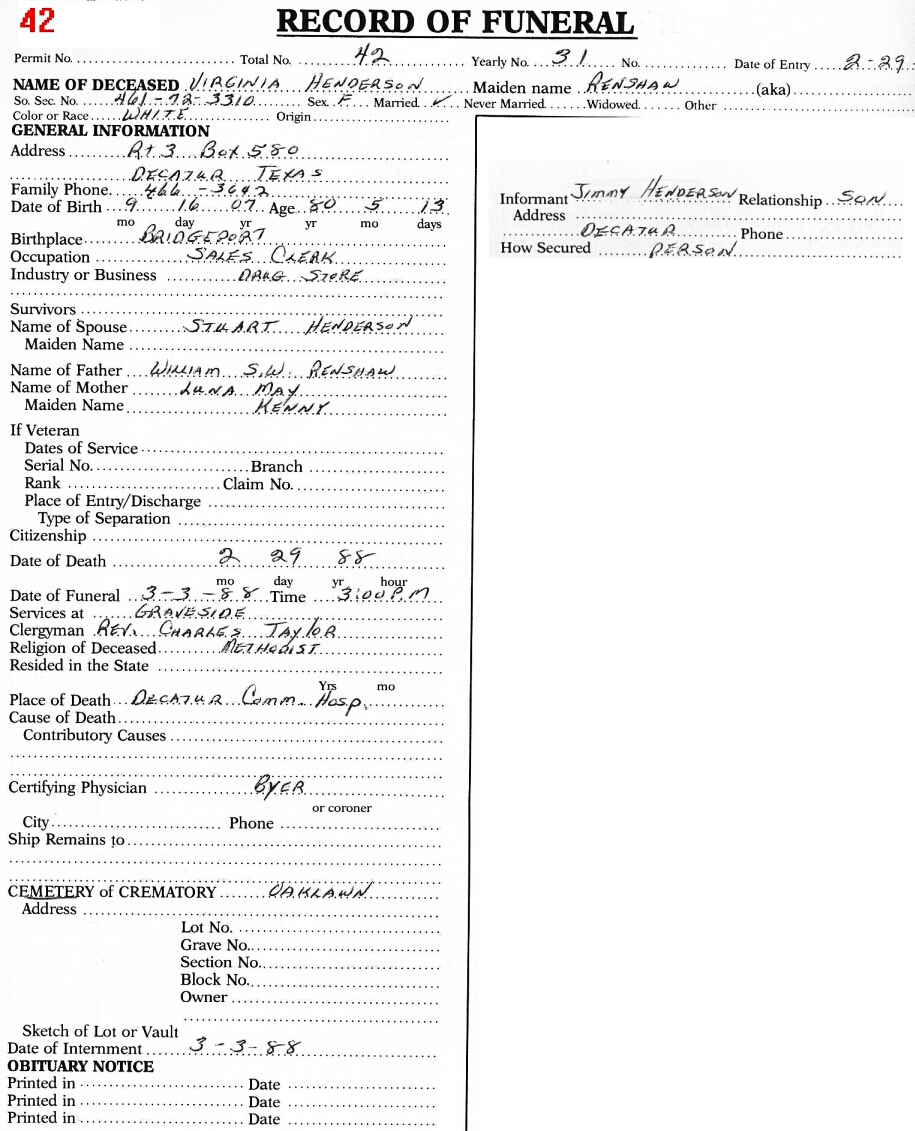 42
RECORD OF FUNERAL
Permit No. Total No. 42 Yearly No. 31 No. Date of Entry 2-29-
NAME OF DECEASED VIRGINIA HENDERSON Maiden name RENSHAW (aka)
So. Sec. No. 461-72-3310 Sex F Married ✓ Never Married Widowed Other
Color or Race WHITE Origin
GENERAL INFORMATION
Address Rt 3 Box 580
DECATUR TEXAS
Family Phone 466-3642
Date of Birth 9 16 07 Age 80 5 13
mo day yr yr mo days
Birthplace BRIDGEPORT
Occupation SALES CLERK
Industry or Business DRUG STORE
Survivors
Name of Spouse STUART HENDERSON
Maiden Name
Name of Father WILLIAM S.W. RENSHAW
Name of Mother LUNA MAY
Maiden Name KENNY
If Veteran
Dates of Service
Serial No. Branch
Rank Claim No.
Place of Entry/Discharge
Type of Separation
Citizenship
Date of Death 2 29 88
mo day yr hour
Date of Funeral 3-3-88 Time 3:00 P.M
Services at GRAVESIDE
Clergyman REV. CHARLES TAYLOR
Religion of Deceased METHODIST
Resided in the State
Yrs mo
Place of Death DECATUR Comm. Hosp.
Cause of Death
Contributory Causes
Certifying Physician BYER
or coroner
City Phone
Ship Remains to
CEMETERY of CREMATORY OAKLAWN
Address
Lot No.
Grave No.
Section No.
Block No.
Owner
Sketch of Lot or Vault
Date of Internment 3-3-88
OBITUARY NOTICE
Printed in Date
Printed in Date
Printed in Date
Informant JIMMY HENDERSON Relationship SON
Address
DECATUR Phone
How Secured PERSON